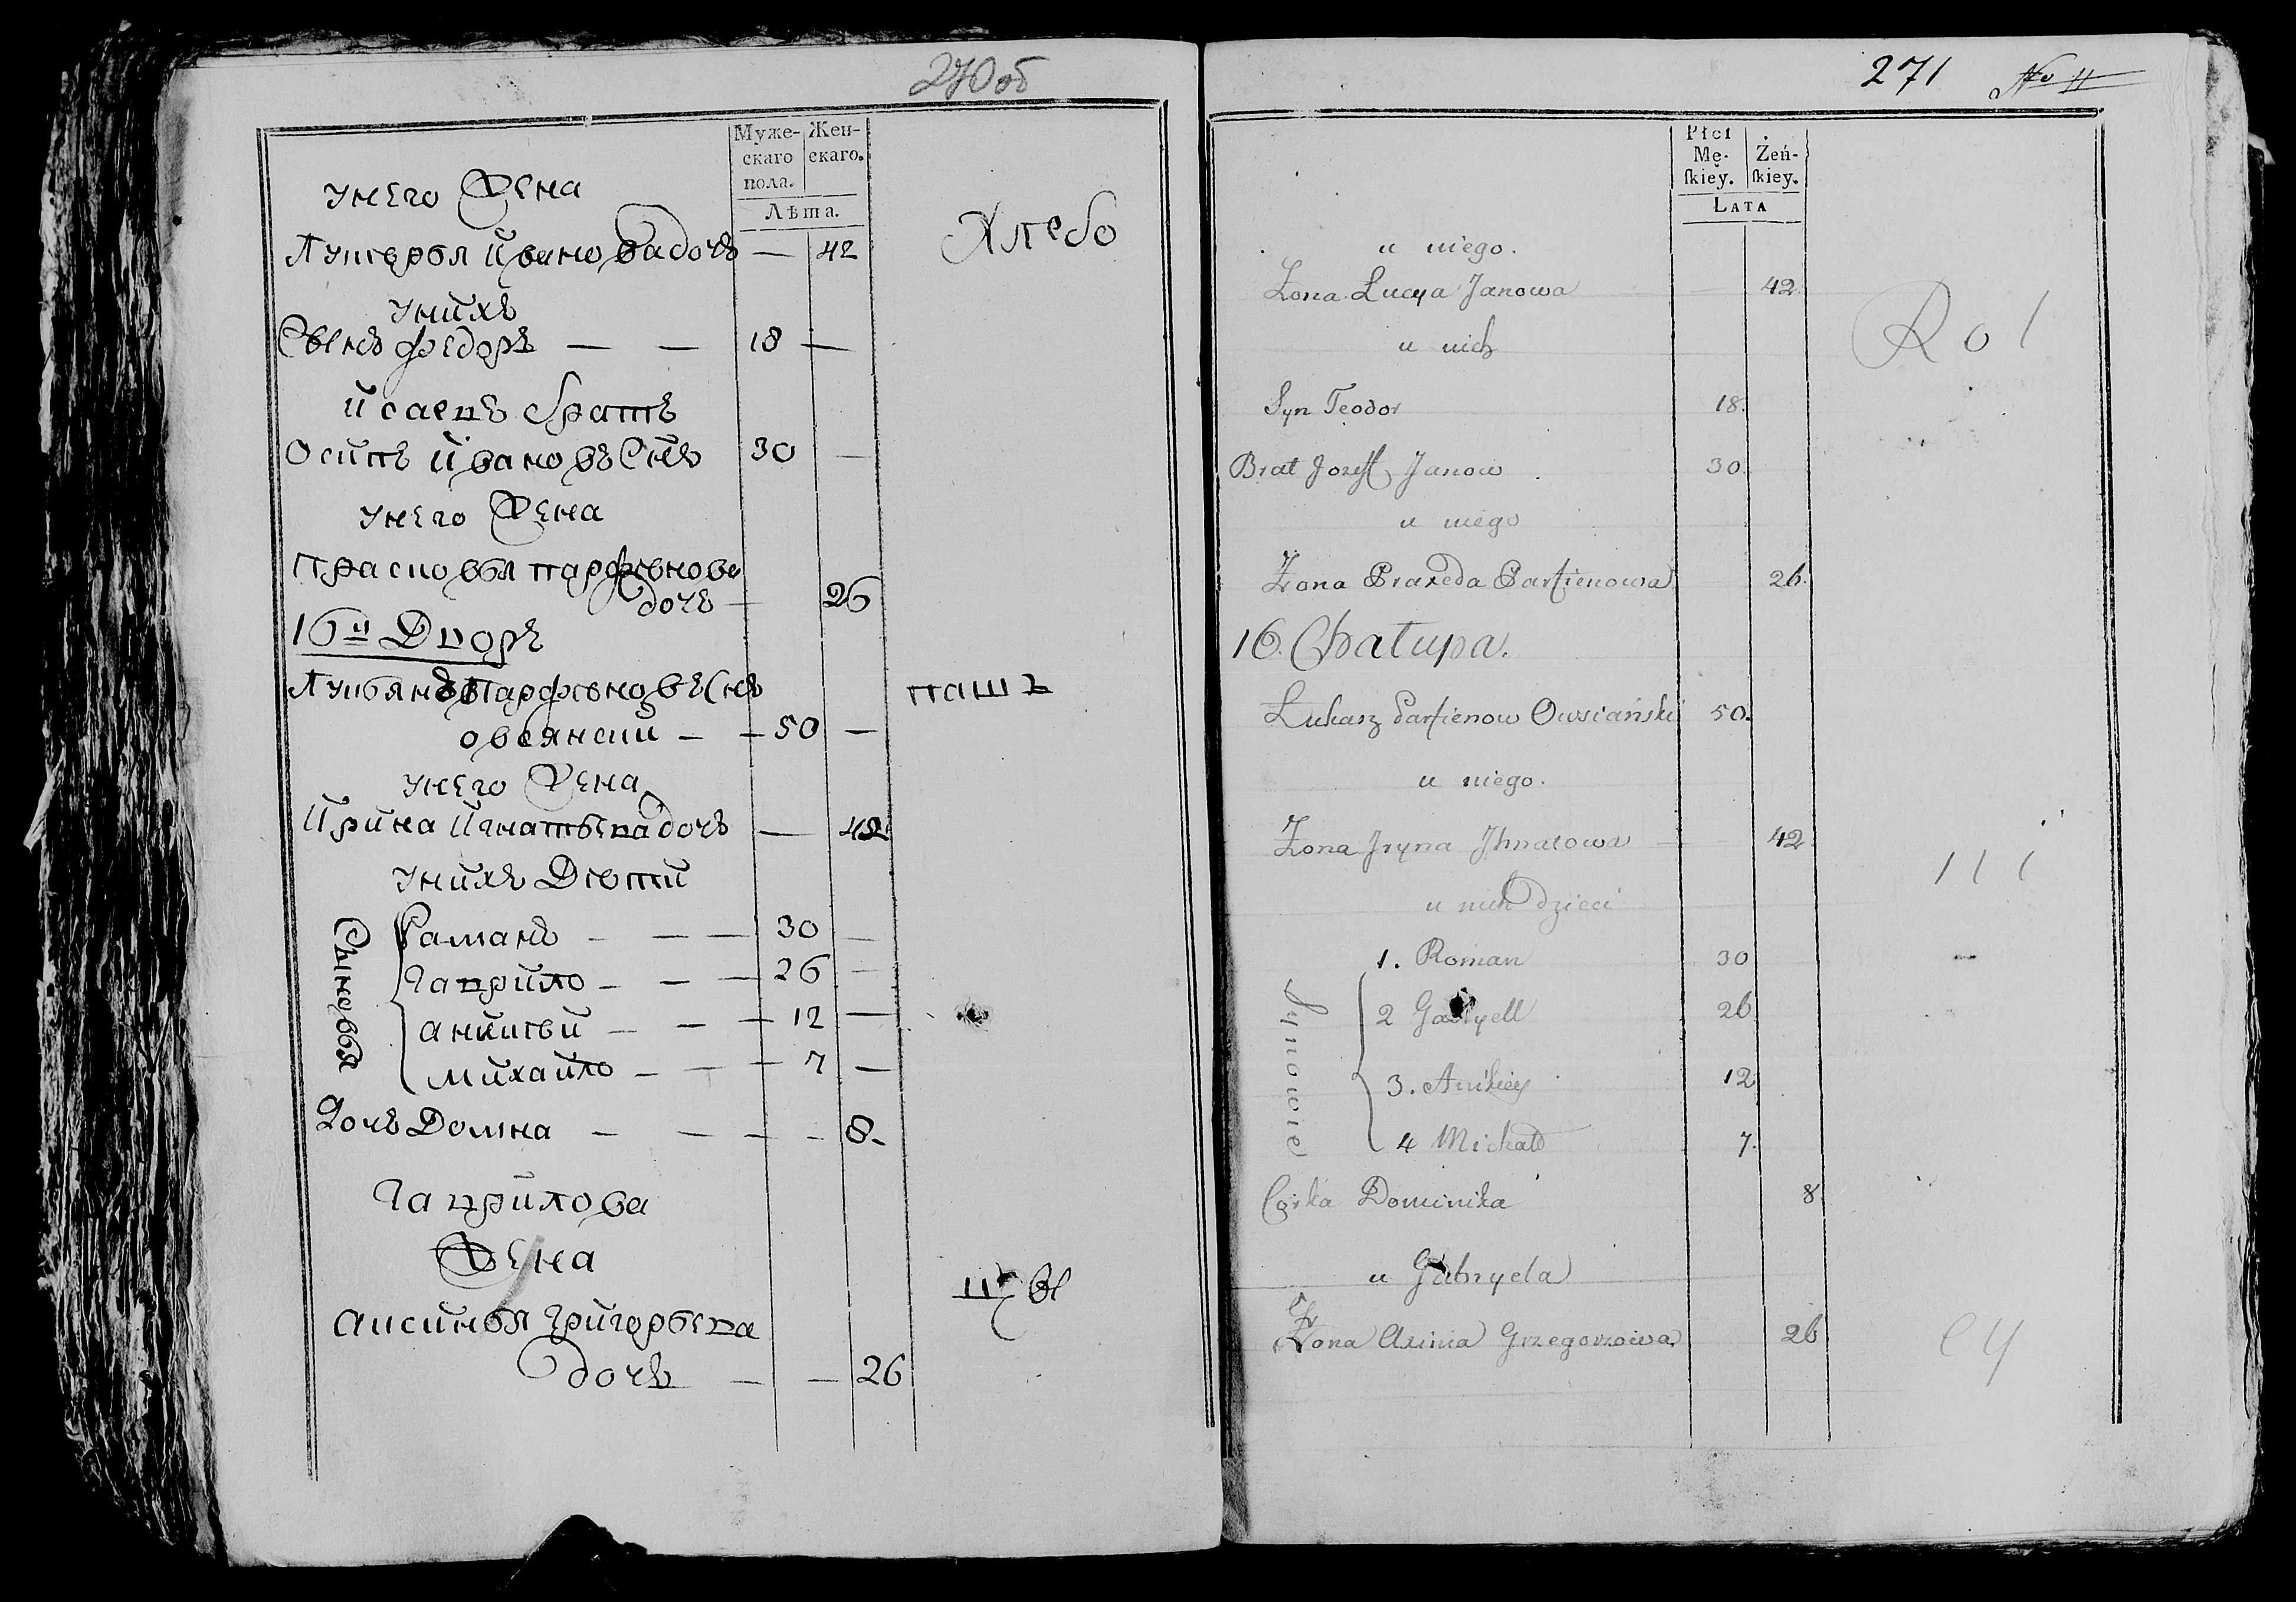 270об
Муже- Жен-
скаго скаго.
пола.
Лѣта.
унего Жена
Лукерья Иванова дочь — 42
Хлебо
унихъ
Сынъ Федоръ — — 18 —
Исаевъ братъ
Осипъ Ивановъ Снъ 30 —
унего Жена
Прасковья парфѣнова
дочь — 26
16й Дворъ
Лукьянъ Парфѣновъ Снъ
пашъ
овсянски — — 50 —
унего Жена
Ирина Игнатьева дочь — 42
унихъ Дѣти
Сыновья
Раманъ — — — 30 —
Гаврило — — — 26 —
аникѣй — — — 12 —
михайло — — — 7 —
Дочь Домна — — — - 8.
Гаврилова
Жена
цы
аксинья григорьева
дочь — — 26
271 No 11
Płci
Mę- Żeń-
skiey. skiey.
LATA
u niego.
Żona Łucya Janowa 42
Rol
u nich
Syn Teodor 18.
Brat Jozeff Janow 30
u niego
Żona Praxeda Parfienowa 26.
16. Chałupa.
Łukasz Parfienow Owsiański 50.
u niego.
Żona Jryna Jhnatowa 42
u nich dzieci
Synowie
1. Roman 30
2 Gabryell 26
3. Anikiey 12
4 Michał 7.
Corka Dominika 8
u Gabryela
Żona Axinia Grzegorzowa 26
cy